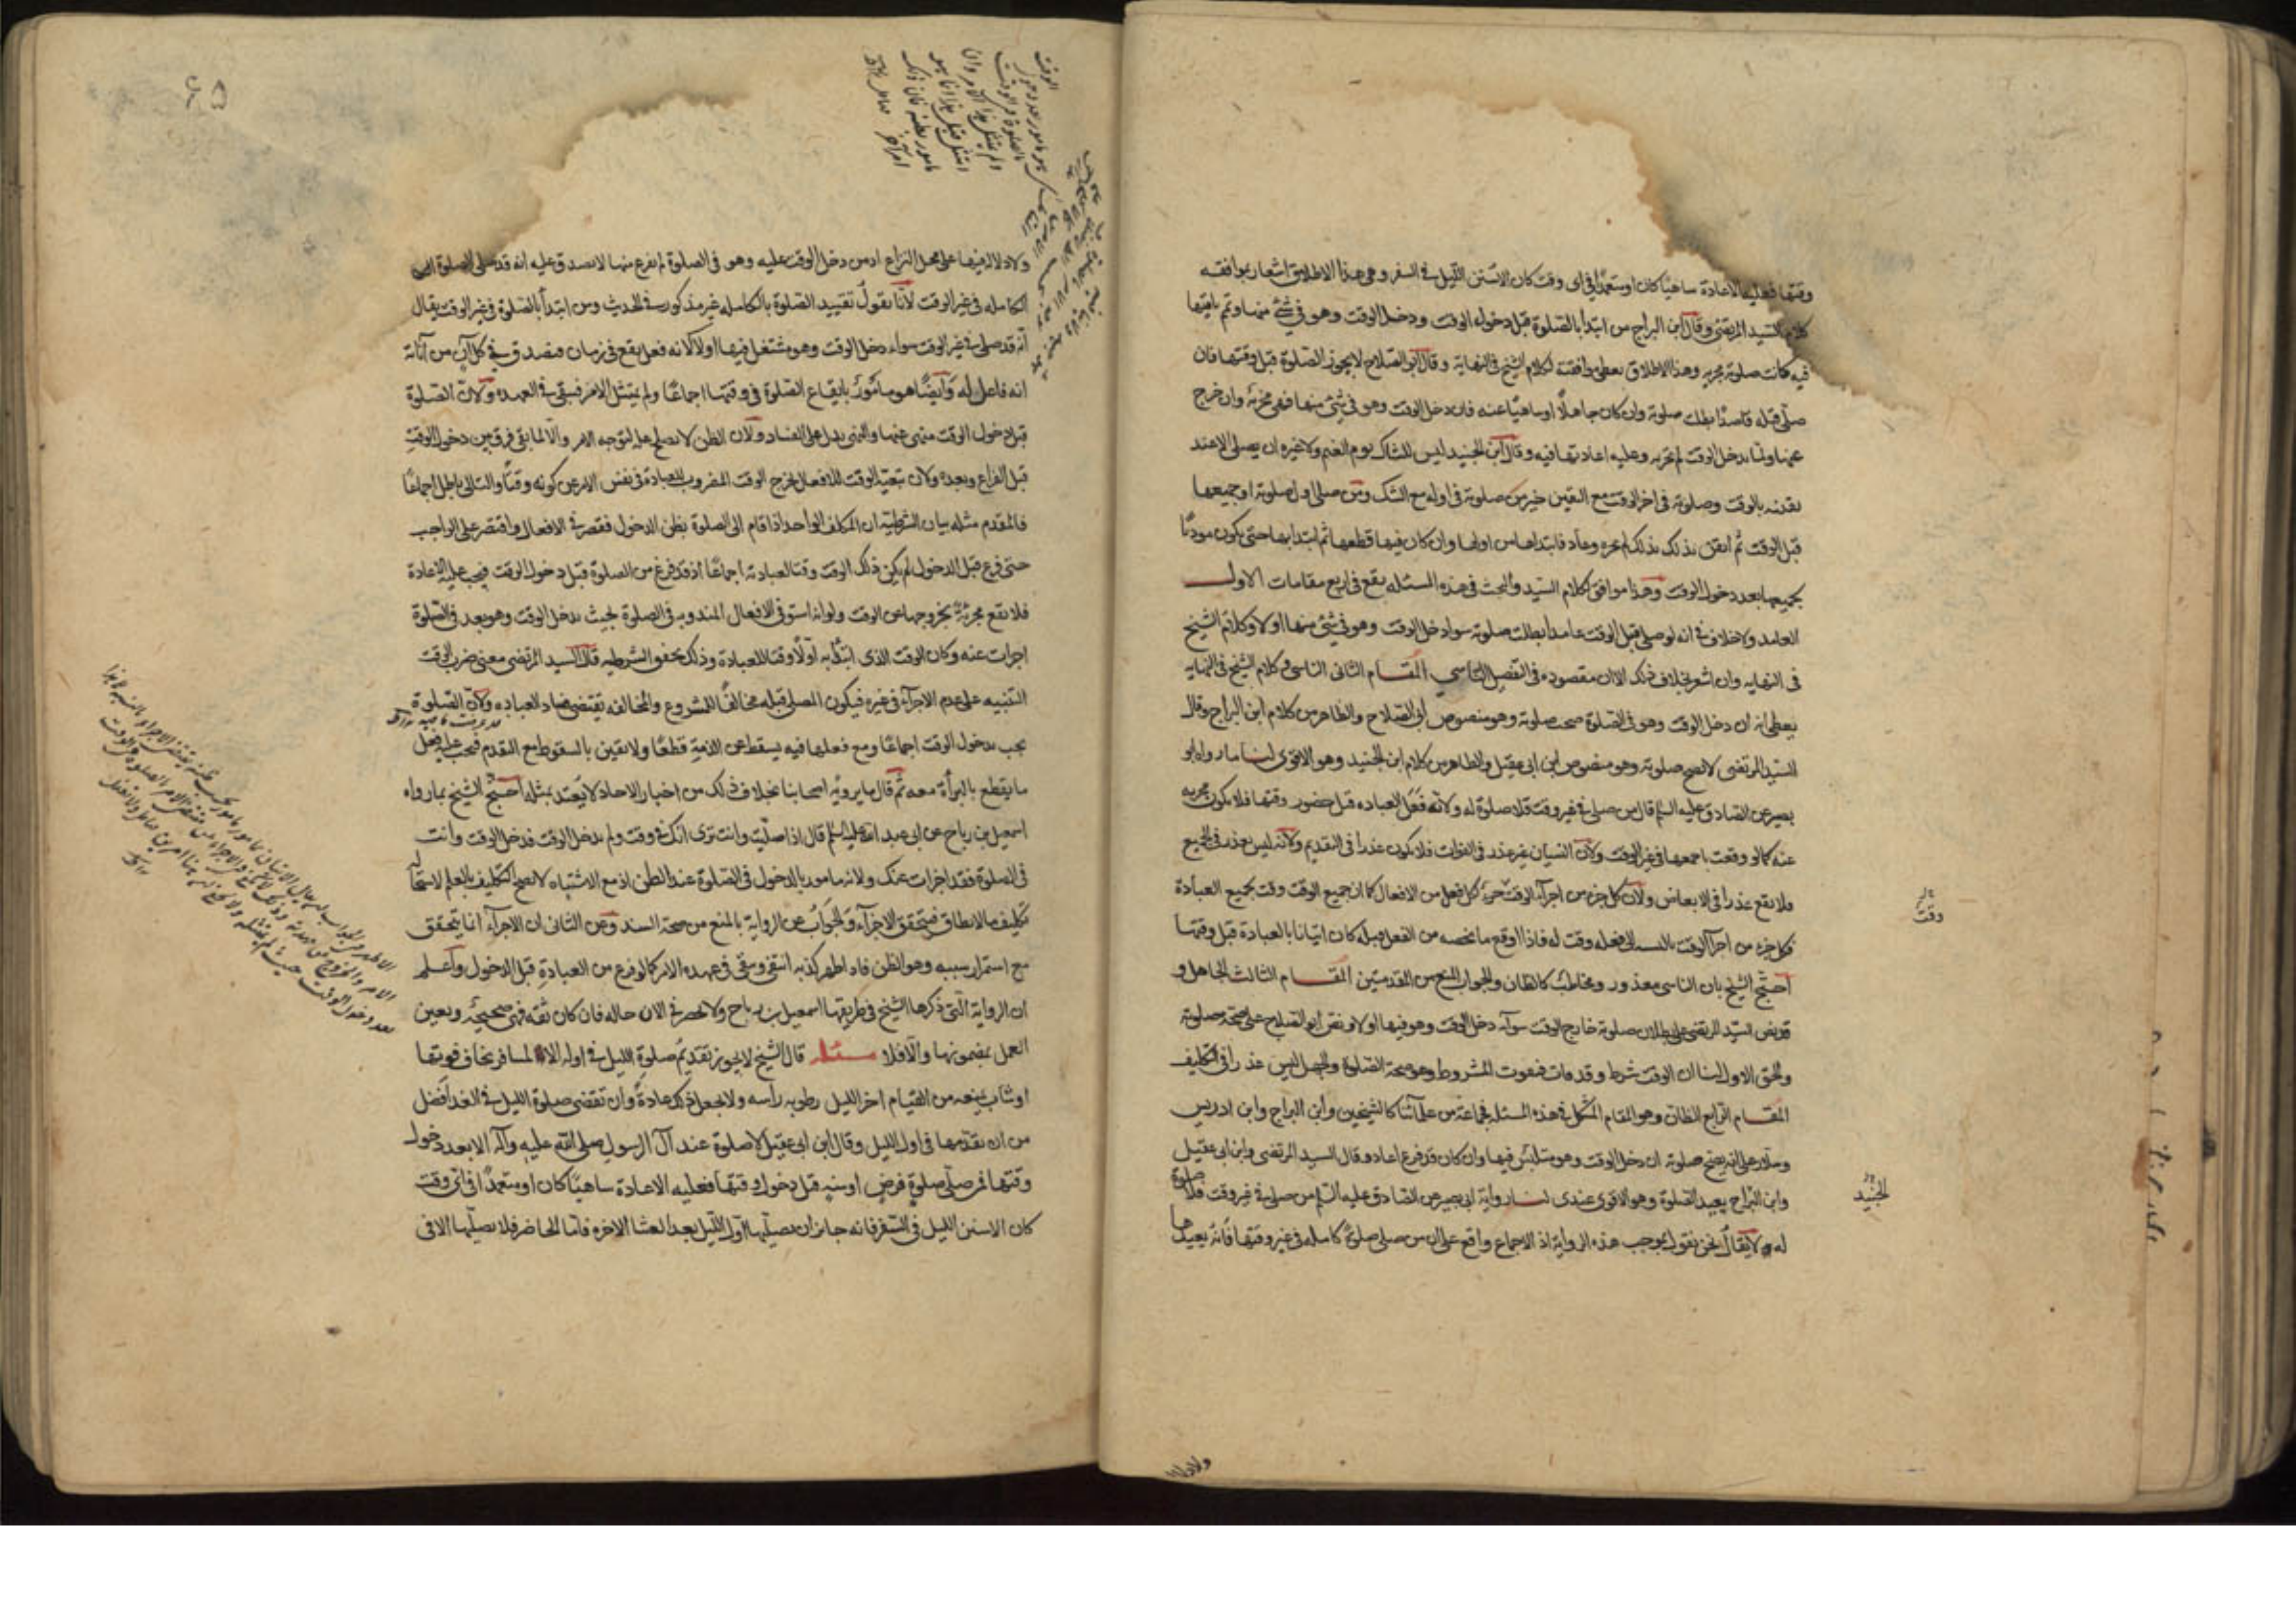 وقتها فعليه الاعادة ساهيا كان او متعمدا فى اى وقت كان الا سنن الليل فى السفر وفى هذا الاطلاق اشعار بموافقه
كلام السيد المرتضى وقال ابن البراج من ابتدأ بالصلوة قبل دخول الوقت ودخل الوقت وهو فى شئ منها وتم باقيها
فيه كانت صلوته مجزيه وهذا الاطلاق يعطى موافقته لكلام الشيخ فى النهاية وقال ابو الصلاح لا يجوز الصلوة قبل وقتها فان
صلى قبله قاصدا بطلت صلوته وان كان جاهلا او ساهيا عنه فان دخل الوقت وهو فى شئ منها فهى مجزئة وان خرج
عنها ولما يدخل الوقت لم تجزه وعليه اعادتها فيه وقال ابن الجنيد ليس للشاك يوم الغيم ولا غيره ان يصلى الا عند
يقينه بالوقت وصلوته فى اخر الوقت مع اليقين خير من صلوته فى اوله مع الشك ومن صلى اول صلوته او جميعها
قبل الوقت ثم ايقن ذلك لم يجزه وعاد فابتداها من اولها وان كان فيها قطعها ثم ابتدا بها حتى يكون موديا
بجميعها بعد دخول الوقت وهذا موافق لكلام السيد والبحث فى هذه المسئله يقع فى اربع مقامات الاول
العامد ولا خلاف فى انه لو صلى قبل الوقت عامدا بطلت صلوته سوا دخل الوقت وهو فى شئ منها او لا وكلام الشيخ
فى النهايه وان اشعر بخلاف ذلك الا ان مقصوده فى التفصيل الناسى المقام الثانى الناسى وكلام الشيخ فى النهايه
يعطى انه ان دخل الوقت وهو فى الصلوة صحت صلوته وهو منصوص ابى الصلاح والظاهر من كلام ابن البراج وقال
السيد المرتضى لا تصح صلوته وهو منصوص ابن ابى عقيل والظاهر من كلام ابن الجنيد وهو الاقوى لنا ما رواه ابو
بصير عن الصادق عليه السلم قال من صلى فى غير وقت فلا صلوة له ولانه فعل العباده قبل حضور وقتها فلا يكون مجزيه
عنه كما لو وقعت باجمعها فى غير الوقت ولان النسيان غير عذر فى الفوات فلا يكون عذرا فى التقديم ولانه ليس بعذر فى الجميع
فلا يقع عذرا فى الابعاض ولان كل جزء من اجزاء الوقت جزء كل فعل من الافعال كما ان جميع الوقت وقت بجميع العبادة
فكل جزء من اجزا الوقت بالنسبه الى فعله وقت له فاذا اوقع ما يخصه من الفعل قبله كان اتيانا بالعبادة قبل وقتها
احتج الشيخ بان الناسى معذور ومخاطب كالظان والجواب المنع من المقدمتين المقام الثالث الجاهل و
قد نص السيد المرتضى على بطلان صلوته خارج الوقت سواء دخل الوقت وهو فيها او لا ونص ابو الصلاح على صحة صلوته
والحق الاول لنا ان الوقت شرط وقد فات فيفوت المشروط وهو صحة الصلوة والجهل ليس عذرا فى التكليف
المقام الرابع الظان وهو المقام المشكل فى هذه المسئله فجماعة من علمائنا كالشيخين وابن البراج وابن ادريس
وسلار على انه تصح صلوته ان دخل الوقت وهو متلبس فيها وان كان قد فرغ اعاد وقال السيد المرتضى وابن ابى عقيل
وابن البراج يعيد الصلوة وهو الاقوى عندى لنا رواية ابى بصير عن الصادق عليه السلم من صلى فى غير وقت فلا صلوة
له ولا يقال نحن نقول بموجب هذه الرواية اذ الاجماع واقع على ان من صلى صلوة كامله فى غير وقتها فانه يعيدها
وقت
الجنيد
ولا دلالة
٤٥
ولا دلالة فيها على محل النزاع اذ من دخل الوقت عليه وهو فى الصلوة لم يفرغ منها لا يصدق عليه انه قد صلى الصلوة
الكامله فى غير الوقت لانا نقول تقييد الصلوة بالكامله غير مذكور فى الحديث ومن ابتدأ بالصلوة فى غير الوقت يقال
انه قد صلى فى غير الوقت سواء دخل الوقت وهو مشتغل فيها او لا لانه فعل يقع فى زمان فيصدق فى كل آن من آناته
انه فاعل له وايضا هو مأمور بايقاع الصلوة فى وقتها اجماعا ولم يمتثل الامر فيبقى فى العهده ولان الصلوة
قبل دخول الوقت منهى عنها والنهى يدل على الفساد ولان الظن لا يصلح علة لتوجه الامر والا لما بقى فرق بين دخول الوقت
قبل الفراغ وبعده ولان تبعية الوقت للافعال يخرج الوقت المضروب للعبادة فى نفس الامر عن كونه وقتا والتالى باطل اجماعا
فالمقدم مثله بيان الشرطية ان المكلف الواحد اذا قام الى الصلوة بظن الدخول فقصر فى الافعال واقتصر على الواجب
حتى فرغ قبل الدخول لم يكن ذلك الوقت وقتا لعبادته اجماعا اذ قد فرغ من الصلوة قبل دخول الوقت فيجب عليه الاعادة
فلا تقع مجزئة بخروجها عن الوقت ولو انه استوفى الافعال المندوبه فى الصلوة بحيث يدخل الوقت وهو بعد فى الصلوة
اجزات عنه وكان الوقت الذى ابتدأ به اولا وقتا للعبادة وذلك يحقق الشرطيه قال السيد المرتضى معنى ضرب الوقت
التنبيه على عدم الاجزاء فى غيره فيكون المصلى قبله مخالفا للمشروع والمخالفه تقتضى فساد العباده ولان الصلوة
يجب بدخول الوقت اجماعا ومع فعلها فيه يسقط عن الذمة قطعا ولا يقين بالسقوط مع التقدم فيجب عليه فعل
ما يقطع بالبرأة معه ثم قال ما يرويه اصحابنا بخلاف ذلك من اخبار الاحاد لا يعتد بمثله احتج الشيخ بما رواه
اسمعيل بن رباح عن ابى عبد الله عليه السلم قال اذا صليت وانت ترى انك فى وقت ولم يدخل الوقت فدخل الوقت وانت
فى الصلوة فقد اجزات عنك ولانه مامور بالدخول فى الصلوة عند الظن اذ مع الاشتباه لا يصح التكليف بالعلم لاستحالة
تكليف ما لا يطاق فيتحقق الاجزاء والجواب عن الرواية بالمنع من صحة السند وعن الثانى ان الاجزاء انما يتحقق
مع استمرار سببه وهو الظن فاذا ظهر كذبه انتفى وبقى فى عهدة الامر كما لو فرغ من العبادة قبل الدخول واعلم
ان الرواية التى ذكرها الشيخ فى طريقها اسمعيل بن رباح ولا يحضرنى الان حاله فان كان ثقه فهى صحيحة ويعين
العمل بمضمونها والا فلا مسئله قال الشيخ لا يجوز تقديم صلوة الليل فى اوله الا لمسافر يخاف فوتها
او شاب يمنعه من القيام اخر الليل رطوبه رأسه ولا يجعل ذلك عادة وان تقضى صلوة الليل فى الغد افضل
من ان يقدمها فى اول الليل وقال ابن ابى عقيل لا صلوة عند آل الرسول صلى الله عليه وآله الا بعد دخول
وقتها فمن صلى صلوة فرض او سنه قبل دخول وقتها فعليه الاعادة ساهيا كان او متعمدا فى اى وقت
كان الا سنن الليل فى السفر فانه جايز ان يصليها اول الليل بعد العشا الاخره فاما الحاضر فلا يصليها الا فى